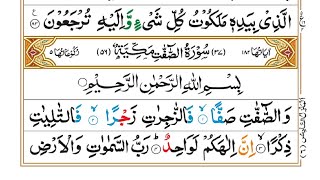 الَّذِىْ بِيَدِهٖ مَلَكُوْتُ كُلِّ شَىْءٍ وَّاِلَيْهِ تُرْجَعُوْنَ ۝۸۳
اٰيَاتُهَا ۱۸۲ (۳۷) سُوْرَةُ الصّٰٓفّٰتِ مَكِّيَّةٌ (۵۶) رُكُوْعَاتُهَا ۵
بِسْمِ اللهِ الرَّحْمٰنِ الرَّحِيْمِ
وَالصّٰٓفّٰتِ صَفًّا ۝۱ فَالزّٰجِرٰتِ زَجْرًا ۝۲ فَالتّٰلِيٰتِ
ذِكْرًا ۝۳ اِنَّ اِلٰهَكُمْ لَوَاحِدٌ ۝۴ رَبُّ السَّمٰوٰتِ وَالْاَرْضِ